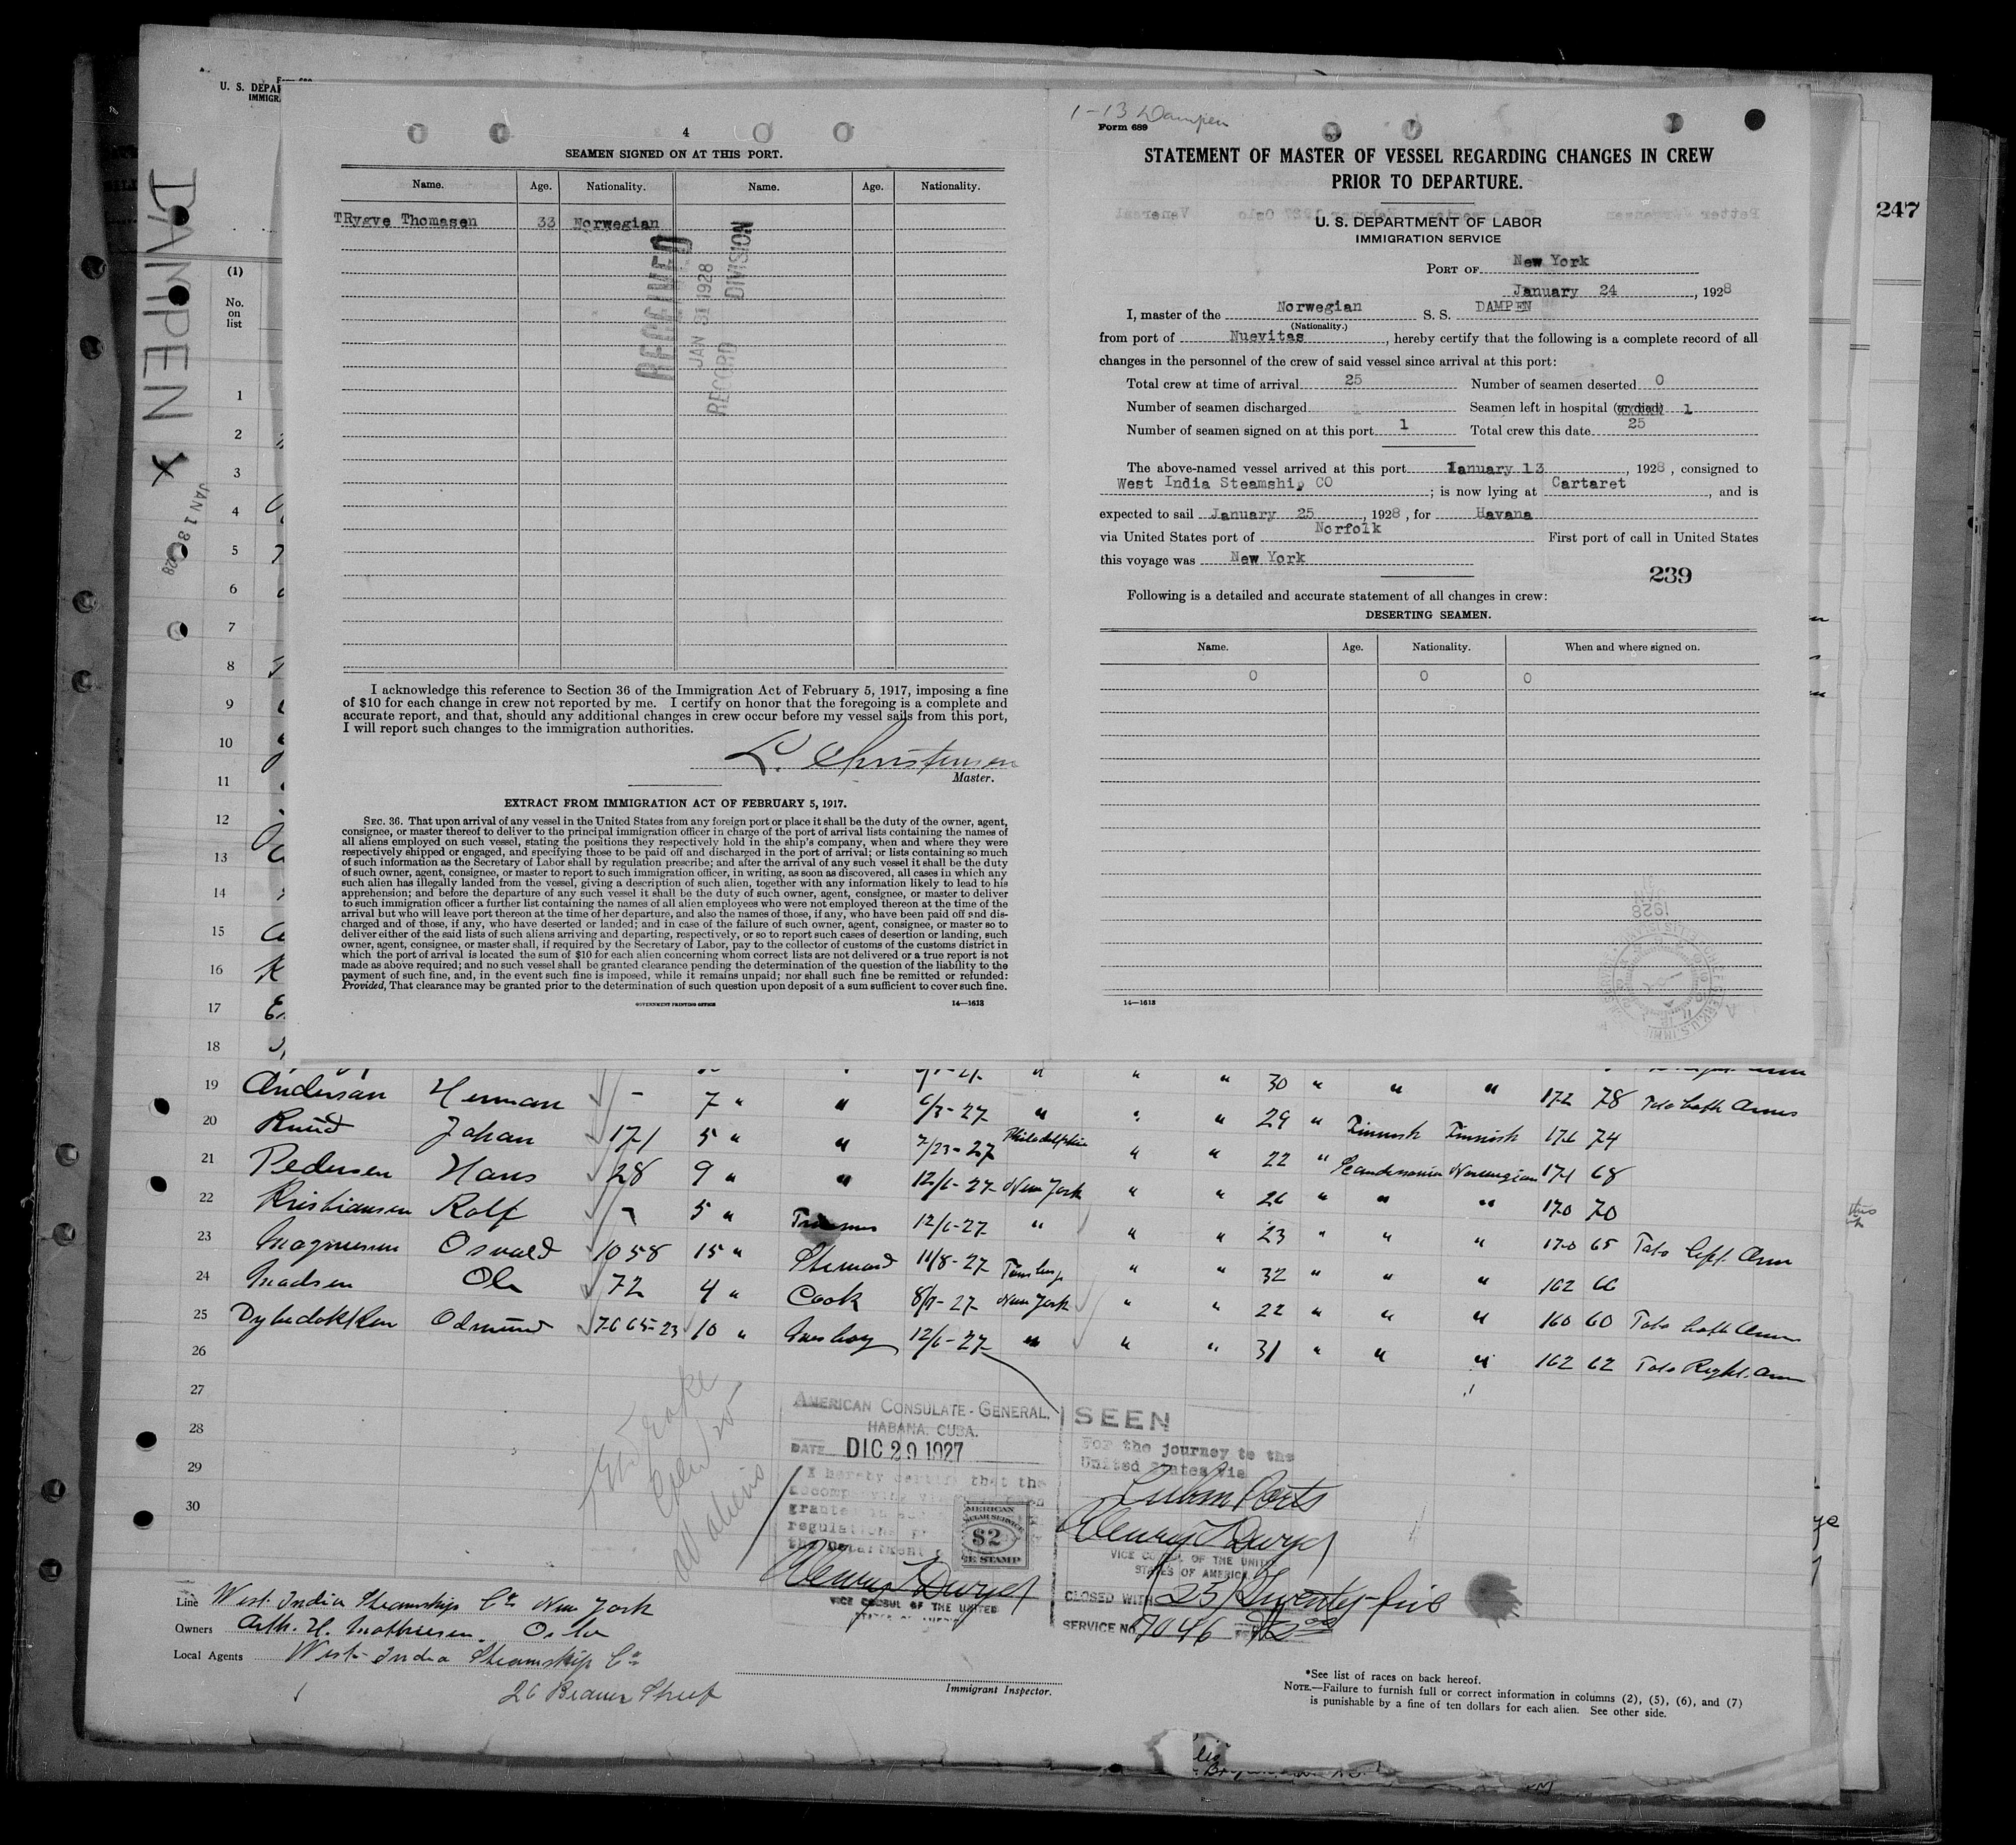 U. S. DEPAR
IMMIGR
DAMPEN X
JAN 18 1928
247
(1)
No.
on
list
1
2
3
4
5
6
7
8
9
10
11
12
13
14
15
16
17
18
4
SEAMEN SIGNED ON AT THIS PORT.
Name. Age. Nationality. Name. Age. Nationality.
TRygve Thomasen 33 Norwegian
RECEIVED
JAN 31 1928
RECORD DIVISION
I acknowledge this reference to Section 36 of the Immigration Act of February 5, 1917, imposing a fine
of $10 for each change in crew not reported by me. I certify on honor that the foregoing is a complete and
accurate report, and that, should any additional changes in crew occur before my vessel sails from this port,
I will report such changes to the immigration authorities.
L. Christensen
Master.
EXTRACT FROM IMMIGRATION ACT OF FEBRUARY 5, 1917.
SEC. 36. That upon arrival of any vessel in the United States from any foreign port or place it shall be the duty of the owner, agent,
consignee, or master thereof to deliver to the principal immigration officer in charge of the port of arrival lists containing the names of
all aliens employed on such vessel, stating the positions they respectively hold in the ship's company, when and where they were
respectively shipped or engaged, and specifying those to be paid off and discharged in the port of arrival; or lists containing so much
of such information as the Secretary of Labor shall by regulation prescribe; and after the arrival of any such vessel it shall be the duty
of such owner, agent, consignee, or master to report to such immigration officer, in writing, as soon as discovered, all cases in which any
such alien has illegally landed from the vessel, giving a description of such alien, together with any information likely to lead to his
apprehension; and before the departure of any such vessel it shall be the duty of such owner, agent, consignee, or master to deliver
to such immigration officer a further list containing the names of all alien employees who were not employed thereon at the time of the
arrival but who will leave port thereon at the time of her departure, and also the names of those, if any, who have been paid off and dis-
charged and of those, if any, who have deserted or landed; and in case of the failure of such owner, agent, consignee, or master so to
deliver either of the said lists of such aliens arriving and departing, respectively, or so to report such cases of desertion or landing, such
owner, agent, consignee, or master shall, if required by the Secretary of Labor, pay to the collector of customs of the customs district in
which the port of arrival is located the sum of $10 for each alien concerning whom correct lists are not delivered or a true report is not
made as above required; and no such vessel shall be granted clearance pending the determination of the question of the liability to the
payment of such fine, and, in the event such fine is imposed, while it remains unpaid; nor shall such fine be remitted or refunded:
Provided, That clearance may be granted prior to the determination of such question upon deposit of a sum sufficient to cover such fine.
GOVERNMENT PRINTING OFFICE 14—1613
1-13 Dampen
Form 689
STATEMENT OF MASTER OF VESSEL REGARDING CHANGES IN CREW
PRIOR TO DEPARTURE.
U. S. DEPARTMENT OF LABOR
IMMIGRATION SERVICE
PORT OF New York
January 24, 1928
I, master of the Norwegian S. S. DAMPEN
(Nationality.)
from port of Nuevitas, hereby certify that the following is a complete record of all
changes in the personnel of the crew of said vessel since arrival at this port:
Total crew at time of arrival 25 Number of seamen deserted 0
Number of seamen discharged Seamen left in hospital (or died) 1
Number of seamen signed on at this port 1 Total crew this date 25
The above-named vessel arrived at this port January 13, 1928, consigned to
West India Steamship CO; is now lying at Cartaret, and is
expected to sail January 25, 1928, for Havana
via United States port of Norfolk First port of call in United States
this voyage was New York
239
Following is a detailed and accurate statement of all changes in crew:
DESERTING SEAMEN.
Name. Age. Nationality. When and where signed on.
0 0 0
14—1613
19 Andersan Herman - 7 " " 6/7-27 " " " 30 " " " 172 78 Tato both Arms
20 Ruud Johan 171 5 " " 7/23-27 Philadelphia " " 29 " Finnish Finnish 176 74
21 Pedersen Hans 28 9 " " 12/6-27 New York " " 22 " Scandinavian Norwegian 171 68
22 Kristiansen Rolf - 5 " 12/6-27 " " " 26 " " " 170 70
23 Magnussen Osvald 1058 15 " Steward 11/8-27 " " 23 " " " 170 65 Tato left Arm
24 Madsen Ole 72 4 " Cook 8/9-27 New York " " 32 " " " 162 66
25 Odmund 7665-23 10 " Messboy 12/6-27 " " " 22 " " " 160 60 Tato both Arms
26 " " 31 " " " 162 62 Tato Right Arm
27
28
29
30
all aliens
AMERICAN CONSULATE-GENERAL.
HABANA, CUBA.
DATE DIC 29 1927
I hereby certify that the
accompanying
granted in
regulations
the Department
AMERICAN
CONSULAR SERVICE
$2
FEE STAMP
Henry T. Dwyer
VICE CONSUL OF THE UNITED
STATES OF AMERICA
SEEN
For the journey to the
United States via
Cuban Ports
Henry T. Dwyer
VICE CONSUL OF THE UNITED
STATES OF AMERICA
CLOSED WITH 25 Twenty-five
SERVICE No. 7046 FEE $2.00
Line West India Steamship Co New York
Owners Arth. H. Mathiesen. Oslo
Local Agents West India Steamship Co
26 Beaver Street
Immigrant Inspector.
*See list of races on back hereof.
NOTE.—Failure to furnish full or correct information in columns (2), (5), (6), and (7)
is punishable by a fine of ten dollars for each alien. See other side.